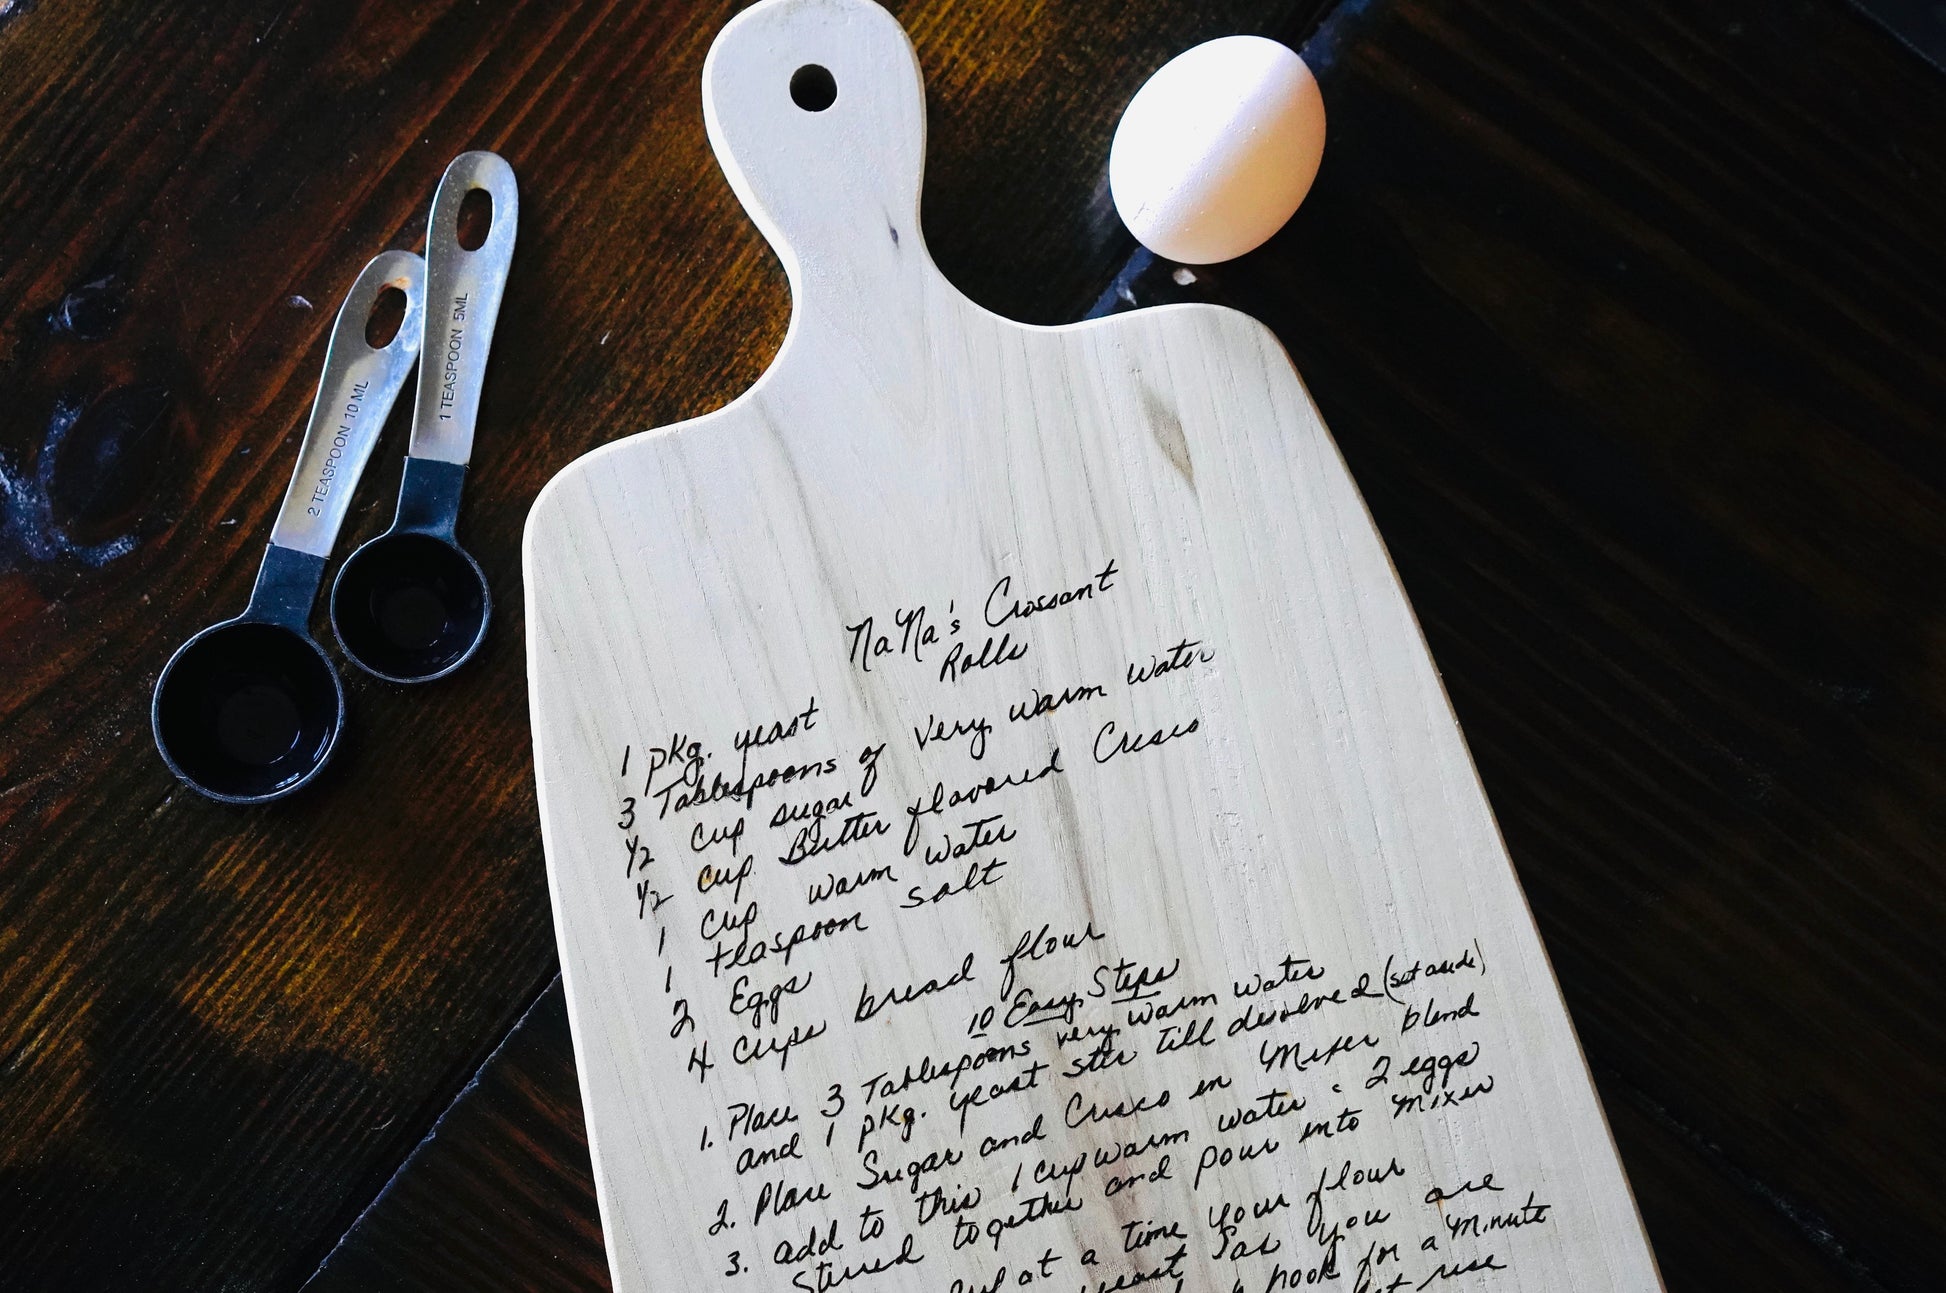 2 TEASPOON 10 ML
1 TEASPOON 5ML
NaNa's Crossant
Rolls
1 pkg. yeast
3 Tablespoons of Very warm water
1/2 cup sugar
1/2 cup Butter flavored Crisco
1 cup warm water
1 teaspoon salt
2 Eggs
4 cups bread flour
10 Easy Steps
1. Place 3 Tablespoons very warm water
and 1 pkg. yeast stir till dissolved (set aside)
2. Place Sugar and Crisco in Mixer blend
3. add to this 1 cup warm water 2 eggs
Stirred together and pour into Mixer
at a time your flour
yeast as you are
hook for a Minute
use